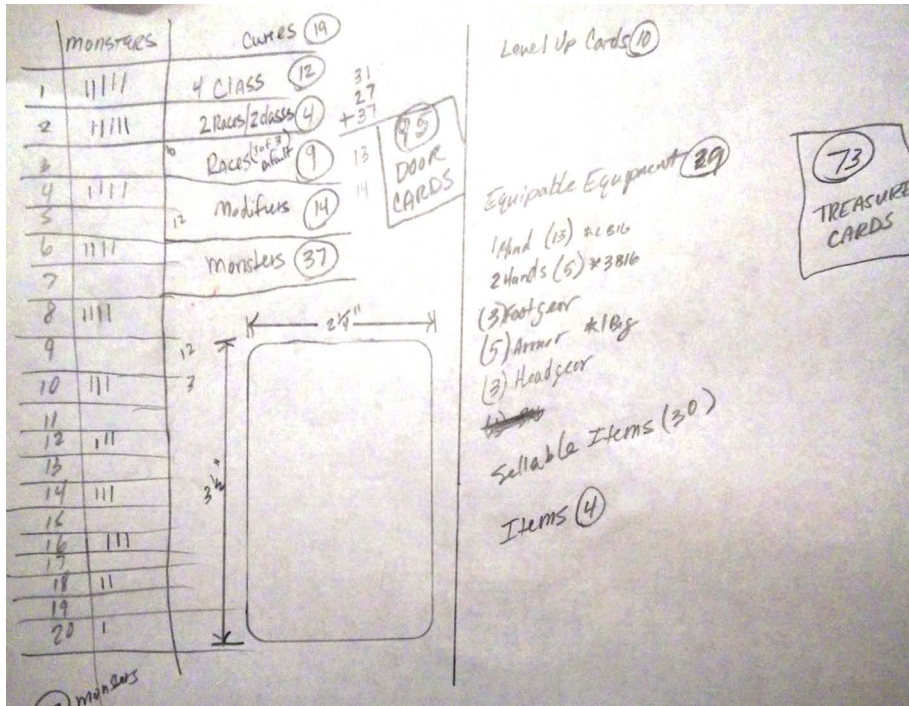 MONSTERS
1 |||||
2 |||||
3
4 ||||
5
6 ||||
7
8 ||||
9
10 |||
11
12 |||
13
14 |||
15
16 |||
17
18 ||
19
20 |
monsters
Curses 19
4 CLASS 12
2 Races/2 classes 4
Races 9
12 Modifiers 14
Monsters 37
31
27
+37
95
13
14
DOOR
CARDS
2 1/4"
12
3
3 1/2"
Level Up Cards 10
Equipable Equipment 29
1 Hand (13)
2 Hands (5) *3 BIG
(3) Footgear
(5) Armor *1 Big
(3) Headgear
Sellable Items (30)
Items 4
73
TREASURE
CARDS